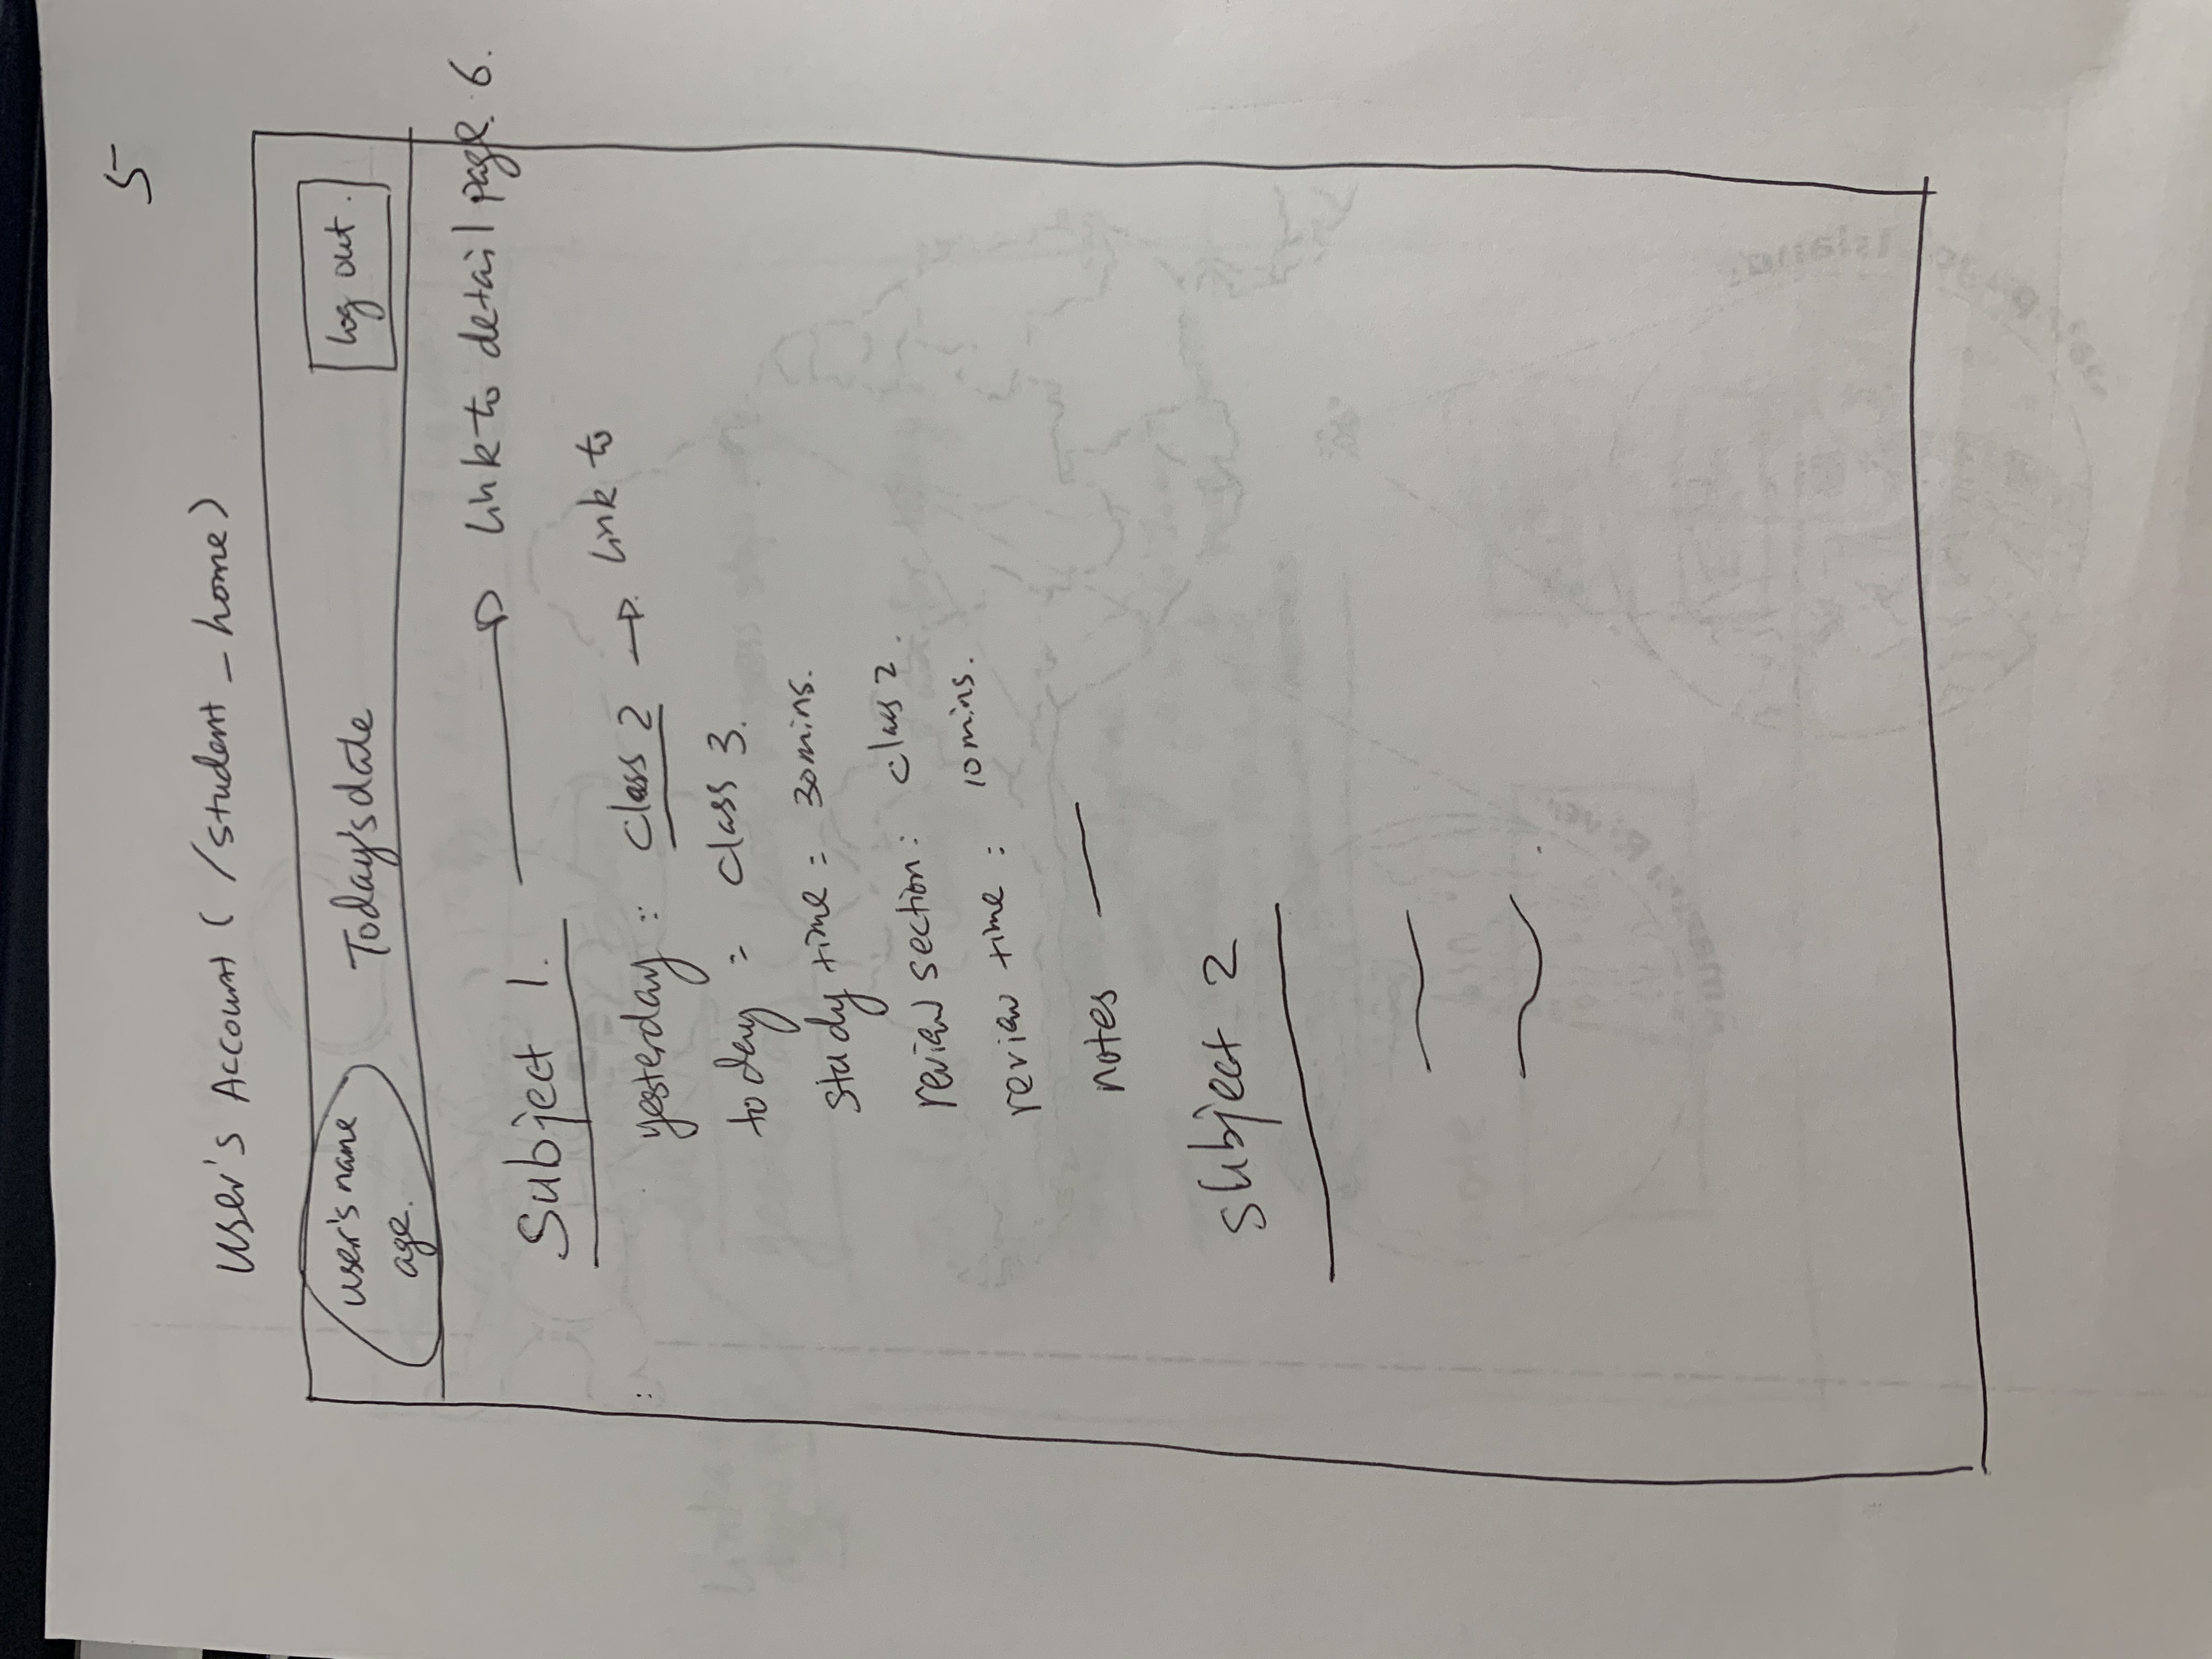 5
User's Account ( /student _ home)
user's name
age.
Today's date
log out.
Subject 1.
Link to detail page. 6.
yesterday : class 2
Link to
today : class 3.
study time : 30mins.
review section : class 2.
review time : 10mins.
notes
subject 2